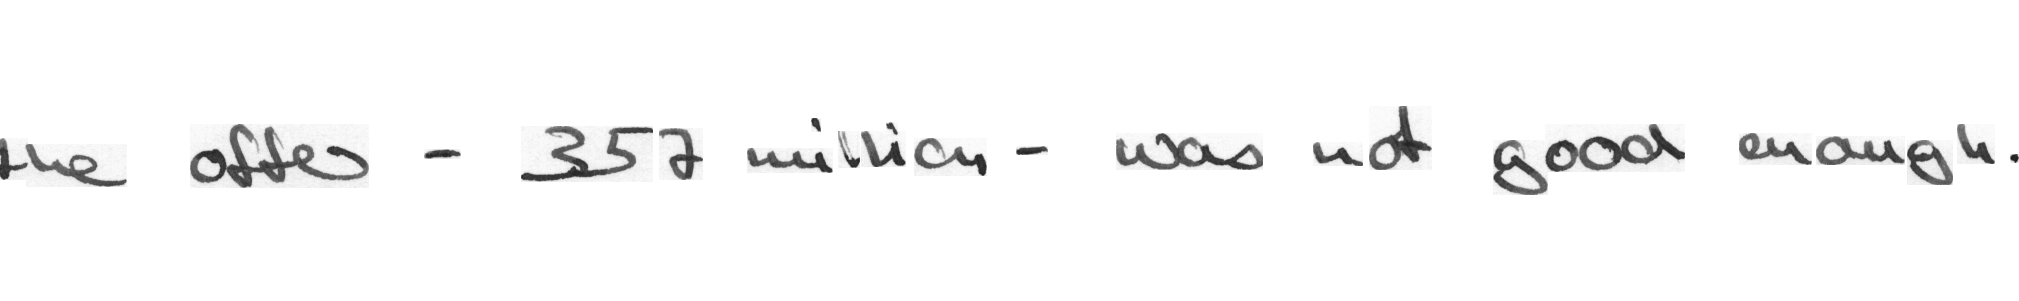 the offer - 357 million - was not good enough.